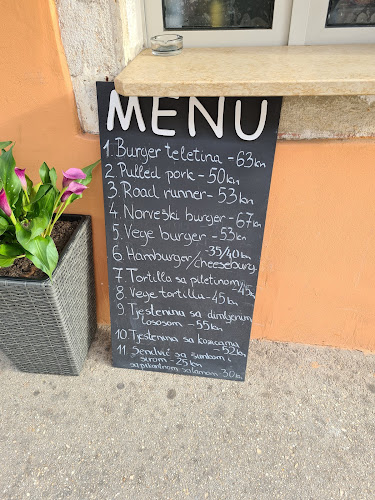 MENU
1. Burger teletina - 63kn
2. Pulled pork - 50kn
3. Road runner - 53kn
4. Norveški burger - 67kn
5. Vege burger - 53kn
6. Hamburger/cheeseburg. - 35/40kn
7. Tortilla sa piletinom/ur - 45kn
8. Vege tortilla - 45kn
9. Tjestenina sa dimljenim
lososom - 55kn
10. Tjestenina sa kozicama - 52kn
11. Sendvič sa šunkom i
sirom - 25kn
sa pikantnom salamom 30kn